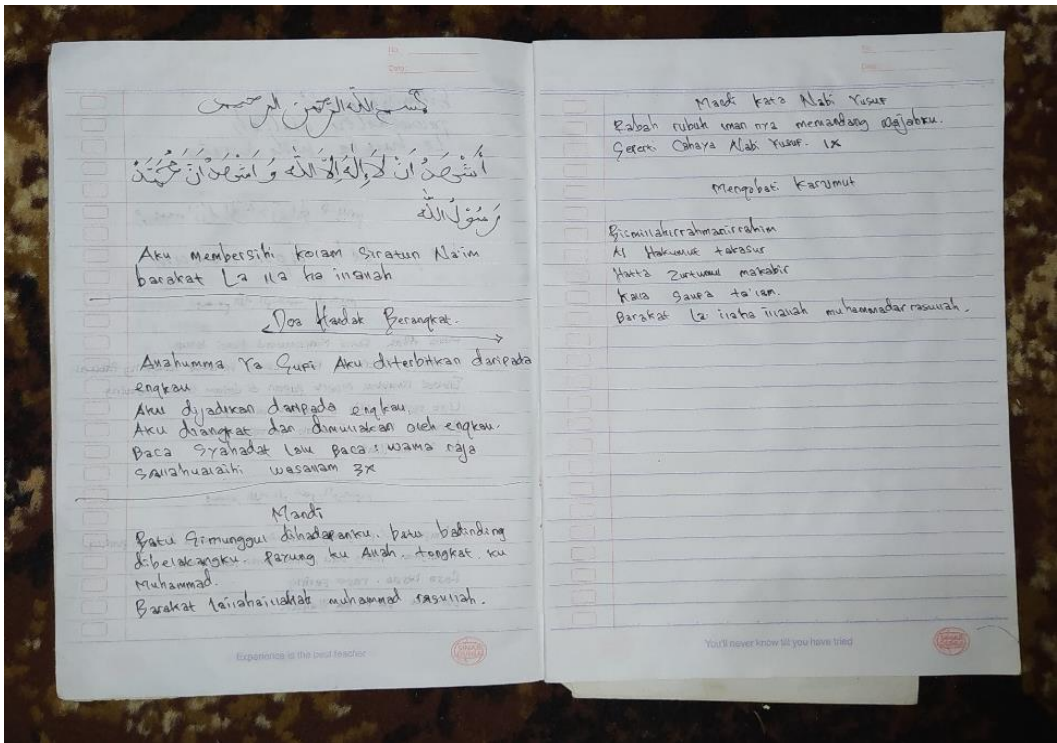 بسم الله الرحمن الرحيم
أَشْهَدُ اَنْ لَا إِلَهَ إِلاَّ اللَّه وَ اَشْهَدُ اَنَّ مُحَمَّدً
رَسُوْلُ اللَّه
Aku membersihi kolam Siratun Na'im
barakat La ila ha illallah
Doa Handak Berangkat.
Allahumma Ya Gufi Aku diterbitkan daripada
engkau
Aku dijadikan daripada engkau.
Aku diangkat dan dimuliakan oleh engkau.
Baca Syahadat lalu Baca : wama raja
Sallahualaihi wasallam 3x
Mandi
Batu Simunggul dihadapanku. batu badinding
dibelakangku. Payung ku Allah. tongkat ku
Muhammad.
Barakat lailahaillallah muhammad rasullah.
Experience is the best teacher
No.
Date
Mandi kata Nabi Yusuf
Rabah rubuh iman nya memandang wajahku.
Seperti Cahaya Nabi Yusuf. 1x
Mengobati Karumut
Bismillahirrahmanirrahim
Al Hakumut takasur
Hatta Zurtumul makabir
Kalla Saufa ta'lam.
Barakat La ilaha illallah muhammadar rasullah.
You'll never know till you have tried
SINAR
DUNIA